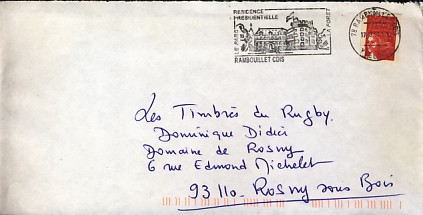 RESIDENCE
PRESIDENTIELLE
LA FORET
RAMBOUILLET CDIS
Les Timbrés du Rugby
Dominique Didier
Domaine de Rosny
6 rue Edmond Michelet
93110 - Rosny sous Bois